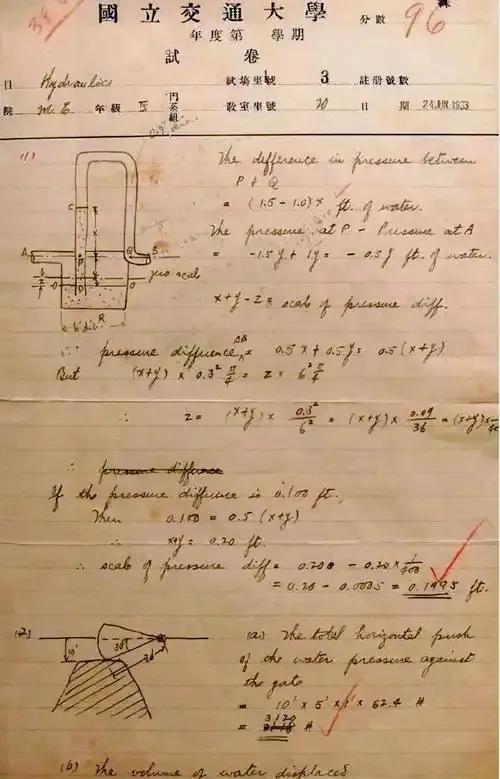 國立交通大學
分數 96
年度第 學期
試卷
目 Hydraulics 試塲坐號 3 註册號數
院 M.E. 年級 IV 門系組 教室坐號 20 日期 24 JUN 1933
(1) The difference in pressure between
P & Q
= (1.5 - 1.0) x ft. of water.
The pressure at P - Pressure at A
= -1.5y + 1y = -0.5y ft. of water.
x+y-z = scale of pressure diff.
C
A
P
Q
B
zero scale
O
O
R
6" dia.
∴ pressure difference AB = 0.5x + 0.5y = 0.5(x+y)
But (x+y) x 0.3² π/4 = z x 6² π/4
∴ z = (x+y) x 0.3²/6² = (x+y) x 0.09/36 = (x+y) x
∴ pressure difference
If the pressure difference is 0.100 ft.,
Then 0.100 = 0.5 (x+y)
∴ x+y = 0.20 ft.
∴ scale of pressure diff = 0.200 - 0.20 x 1/400
= 0.20 - 0.0005 = 0.1995 ft.
(2) (a) The total horizontal push
of the water pressure against
the gate
= 10' x 5' x 1' x 62.4 #
= 3120 #
10'
30°
(b) The volume of water displaced